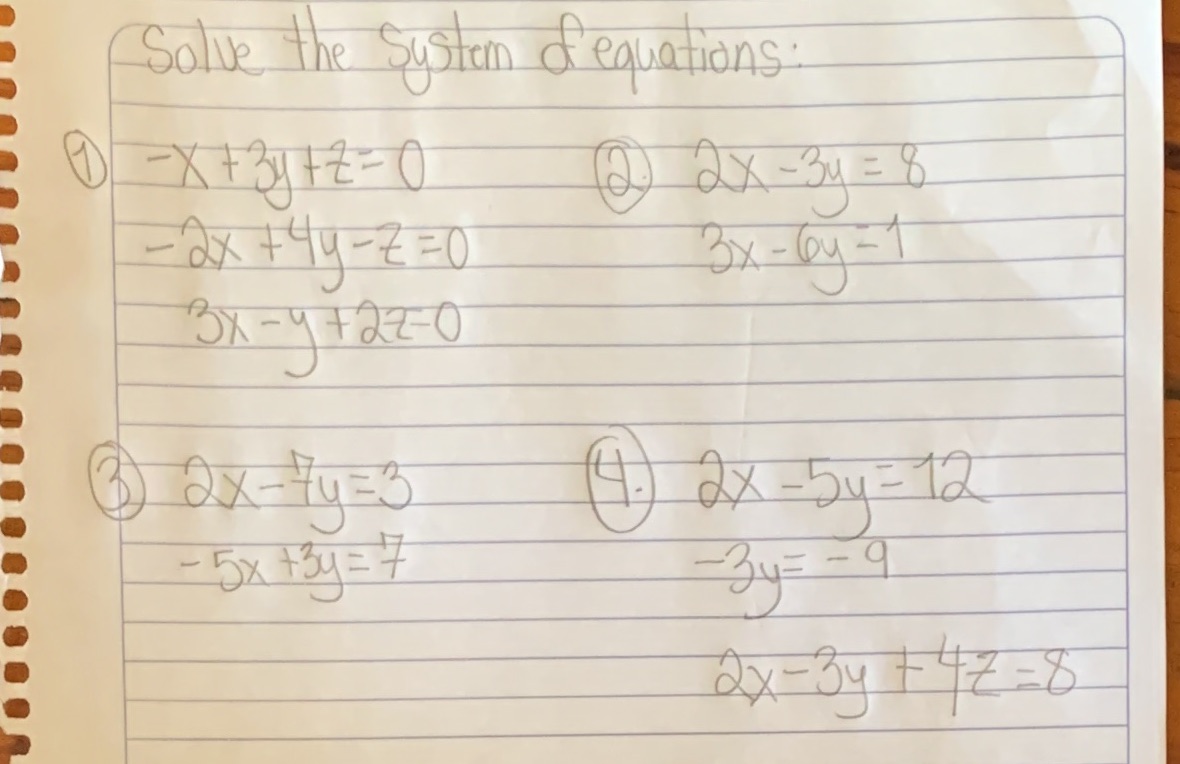 Solve the system of equations:
① -x+3y+z=0
-2x+4y-z=0
3x-y+2z=0
②. 2x-3y=8
3x-6y=1
③ 2x-7y=3
-5x+3y=7
④. 2x-5y=12
-3y=-9
2x-3y+4z=8